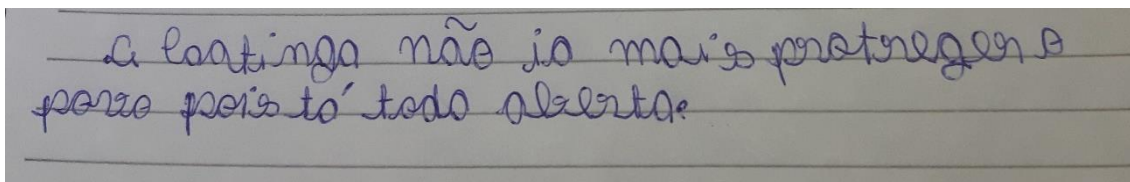 A Caatinga não ia mais protreger o
povo pois tá todo aberta.